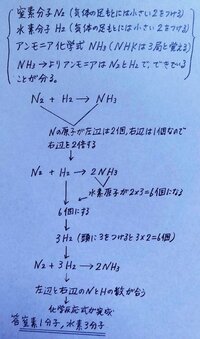 窒素分子N₂(気体の足もとには小さい2をつける)
水素分子H₂(気体の足もとには小さい2をつける)
アンモニア化学式 NH₃(NHKは3局と覚える)
NH₃→よりアンモニアはN₂とH₂で、できている
ことが分る。
N₂ + H₂ → NH₃
Nの原子が左辺は2個,右辺は1個なので
右辺を2倍する
N₂ + H₂ → 2NH₃
水素原子が2×3=6個になる
6個にする
3H₂(頭に3をつけると3×2=6個)
N₂ + 3H₂ → 2NH₃
左辺と右辺のNとHの数が合う
化学反応式が完成
答 窒素1分子,水素3分子